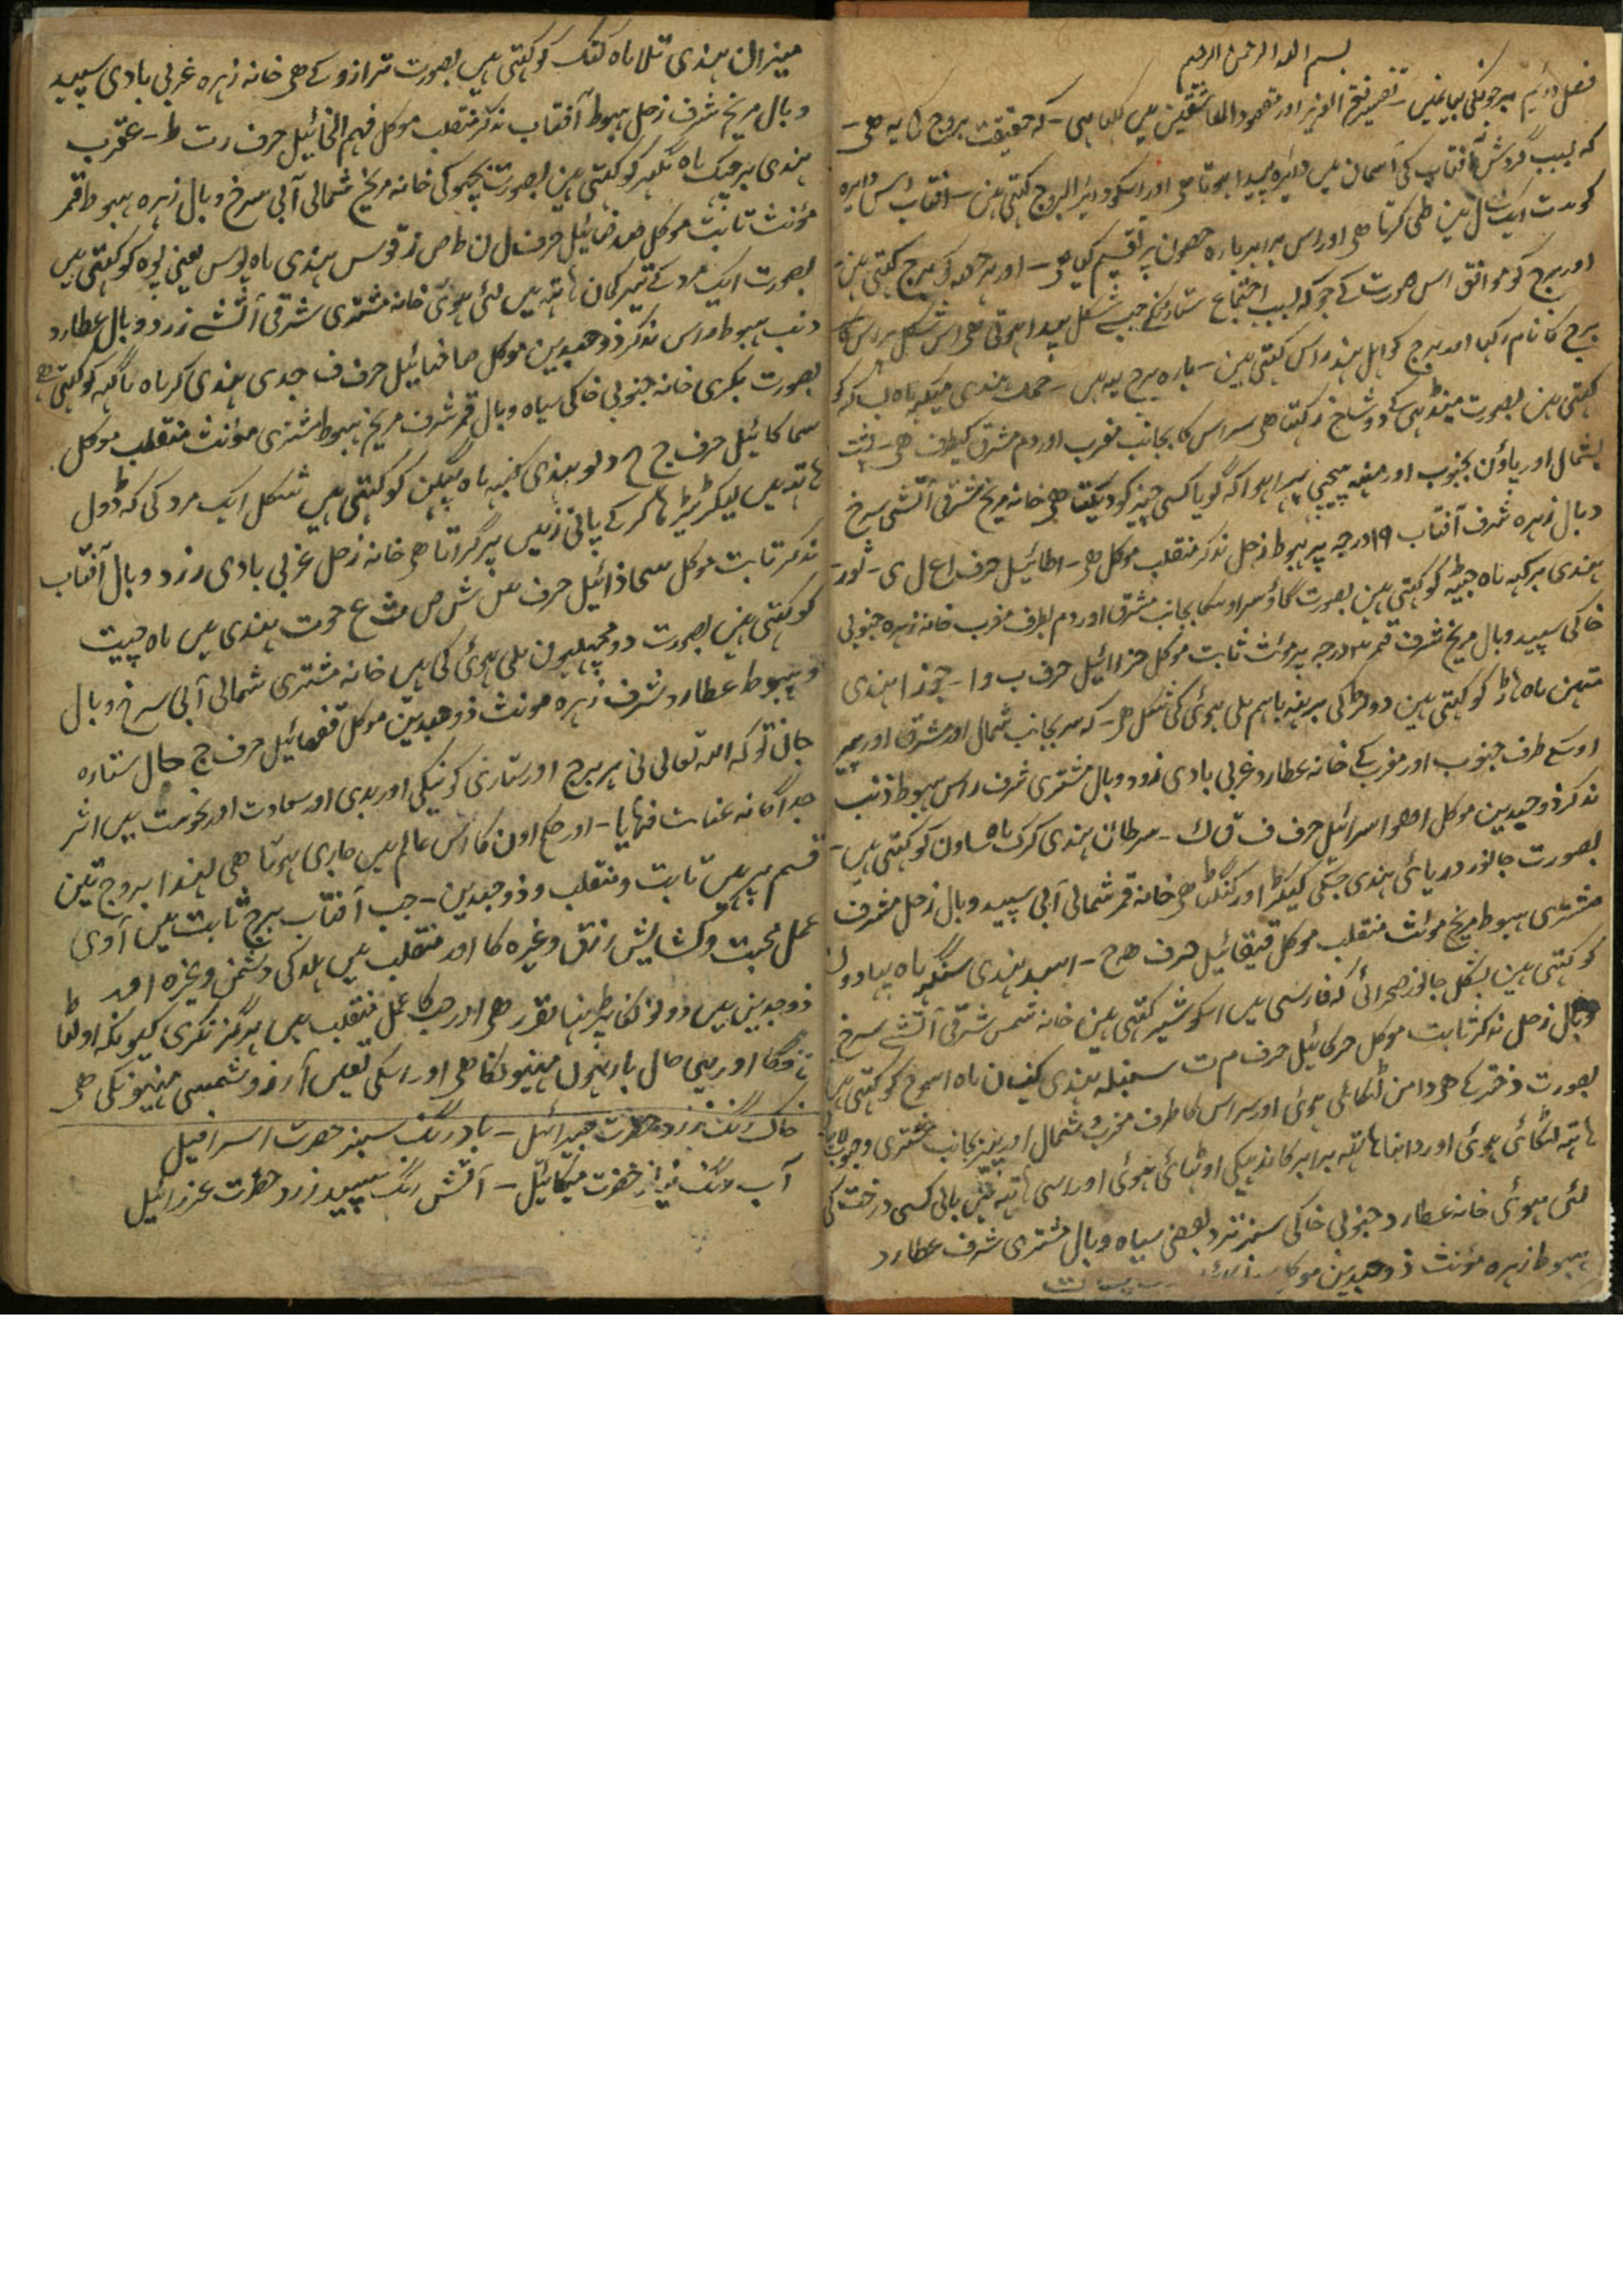 بسم الله الرحمن الرحیم
فصل دویم برجونکی بیانمیں - تفسیر فتح العزیز اور مقصود العاشقین میں لکہا ہی - کہ حقیقت بروج کا یہ ھی -
کہ بسبب گردش آفتاب کی آسمان میں دائرہ پیدا ہوتا ھی اور اسکو دائر البروج کہتی ھین - آفتاب اس دایرہ
کو مدت ایک سال مین طی کرتا ھی اور اس برابر بارہ حصون پر تقسیم کیا ھی - اور ہر حصہ کو برج کہتی ھین
اور برج کو موافق اس صورت کے جو کہ بسبب اجتماع ستاریکی جیسے شکل پیدا ہوتی ھی اس شکل پر اس کا
برج کا نام رکہا اور برج کو اہل ہند راس کہتی ھین - بارہ برج یہ ھیں - حمل ہندی میکہہ ماہ بساکہ کو
کہتی ھین بصورت مینڈہی کے دو شاخ رکہتا ھی سر اس کا بجانب مغرب اور دم مشرق کیطرف ھی - پشت
بشمال اور پاؤن بجنوب اور منہہ پیچہی پہرا ہوا کہ گویا کسی چیز کو دیکہتا ھی خانہ مریخ مشرقی آتشی سرخ
وبال زہرہ شرف آفتاب ۱۹ درجہ پر ہبوط زحل مذکر منقلب موکل ھی - اطائیل حرف ا ع ل ی - ثور
ہندی برکہہ ماہ جیٹہہ کو کہتی ھین بصورت گاؤ سر اوسکا بجانب مشرق اور دم بطرف مغرب خانہ زہرہ جنوبی
خاکی سپید وبال مریخ شرف قمر ۳ درجہ پر مونث ثابت موکل حزائیل حرف ب و ا - جوزا ہندی
متہن ماہ اساڑ کو کہتی ھین دو لڑکی برہنہ باہم ملی ہوئی کی شکل ھی - کہ سر بجانب شمال اور مشرق اور پیر
اوسکے طرف جنوب اور مغرب کے خانہ عطارد غربی بادی زرد وبال مشتری شرف راس ہبوط ذنب
مذکر ذو جسدین موکل اسرائیل حرف ف ق ک - سرطان ہندی کرک ماہ ساون کو کہتی ھیں -
بصورت جانور دریائی ہندی جسکی کیکڑا اور کنگٹا ھی خانہ قمر شمالی آبی سپید وبال زحل شرف
مشتری ہبوط مریخ مونث منقلب موکل قیقائیل حرف ح ہ - اسد ہندی سنگہہ ماہ بہادون
کو کہتی ھین بشکل جانور صحرائی کہ فارسی میں اسکو شیر کہتی ھین خانہ شمس شرقی آتشے سرخ
وبال زحل مذکر ثابت موکل حرکائیل حرف م ت سنبلہ ہندی کنیان ماہ اسوج کو کہتی ھیں
بصورت دختر کے ھی دامن لٹکائی ہوئی اور سر اس کا طرف مغرب و شمال اور پیر بجانب مشرق و جنوب
ہاتہہ لٹکائی ہوئی اور داہنا ہاتہہ برابر کاندہیکی اوٹہائی ہوئی اور اسی ہاتہہ میں بالی کسی درخت کی
لئی ہوئی خانہ عطارد جنوبی خاکی سبز نزد بعضی سیاہ وبال مشتری شرف عطارد
ہبوط زہرہ مونث ذو جسدین موکل
میزان ہندی تلا ماہ کتک کو کہتی ھیں بصورت ترازو کے ھی خانہ زہرہ غربی بادی سپید
وبال مریخ شرف زحل ہبوط آفتاب مذکر منقلب موکل فہم الخائیل حرف ر ت ط - عقرب
ہندی برچہک ماہ مگہر کو کہتی ھین بصورت بچہو کی خانہ مریخ شمالی آبی سرخ وبال زہرہ ہبوط قمر
مؤنث ثابت موکل صرصائیل حرف ل ن ظ ض ز قوس ہندی ماہ پوس یعنی پوہ کو کہتی ھیں
بصورت ایک مرد کے تیر کمان ہاتہہ میں لئی ہوئی خانہ مشتری شرقی آتشے زرد وبال عطارد
ذنب ہبوط راس مذکر ذو جسدین موکل صافنیائیل حرف ف جدی ہندی کر ماہ ماگہہ کو کہتی ھے
بصورت بکری خانہ جنوبی خاکی سیاہ وبال قمر شرف مریخ ہبوط مشتری مؤنث منقلب موکل
سماکائیل حرف ج خ دلو ہندی کنبہہ ماہ پہاگن کو کہتی ھیں شکل ایک مرد کی کہ ڈول
ہاتہہ میں لیکر ٹیڑہا کر کے پانی زمیں پر گراتا ھی خانہ زحل غربی بادی زرد وبال آفتاب
مذکر ثابت موکل سماذائیل حرف س ش ص ث ع حوت ہندی میں ماہ چیت
کو کہتی ھین بصورت دو مچہلیون ملی ہوئی کی ھیں خانہ مشتری شمالی آبی سرخ وبال
و ہبوط عطارد شرف زہرہ مونث ذو جسدین موکل فقمائیل حرف چ حال ستارہ
جان تو کہ اللہ تعالی نی ہر برج اور ستاری کو نیکی اور بدی اور سعادت اور نحوست میں اثر
جداگانہ عنایت فرمایا - اور حکم اون کا اس عالم میں جاری ہوتا ھی لہذا بروج تین
قسم پر ھیں ثابت و منقلب و ذو جسدین - جب آفتاب برج ثابت میں آوی
عمل محبت و کشایش رزق وغیرہ کا اور منقلب میں ہلاکی دشمن وغیرہ اور
ذو جسدین میں دونو نکا پڑہنا مقرر ھی اور حب کا عمل منقلب میں ہرگز نکری کیونکہ اولٹا
ہوگا اور یہی حال بارہون مہنیونکا ھی اور اسکی تعین آرزو شمسی مہنیونکی ھی
خاک رنگ زرد حضرت جبرائیل - باد رنگ سبز حضرت اسرافیل
آب رنگ حضرت میکائیل - آتش رنگ سپید زرد حضرت عزرائیل